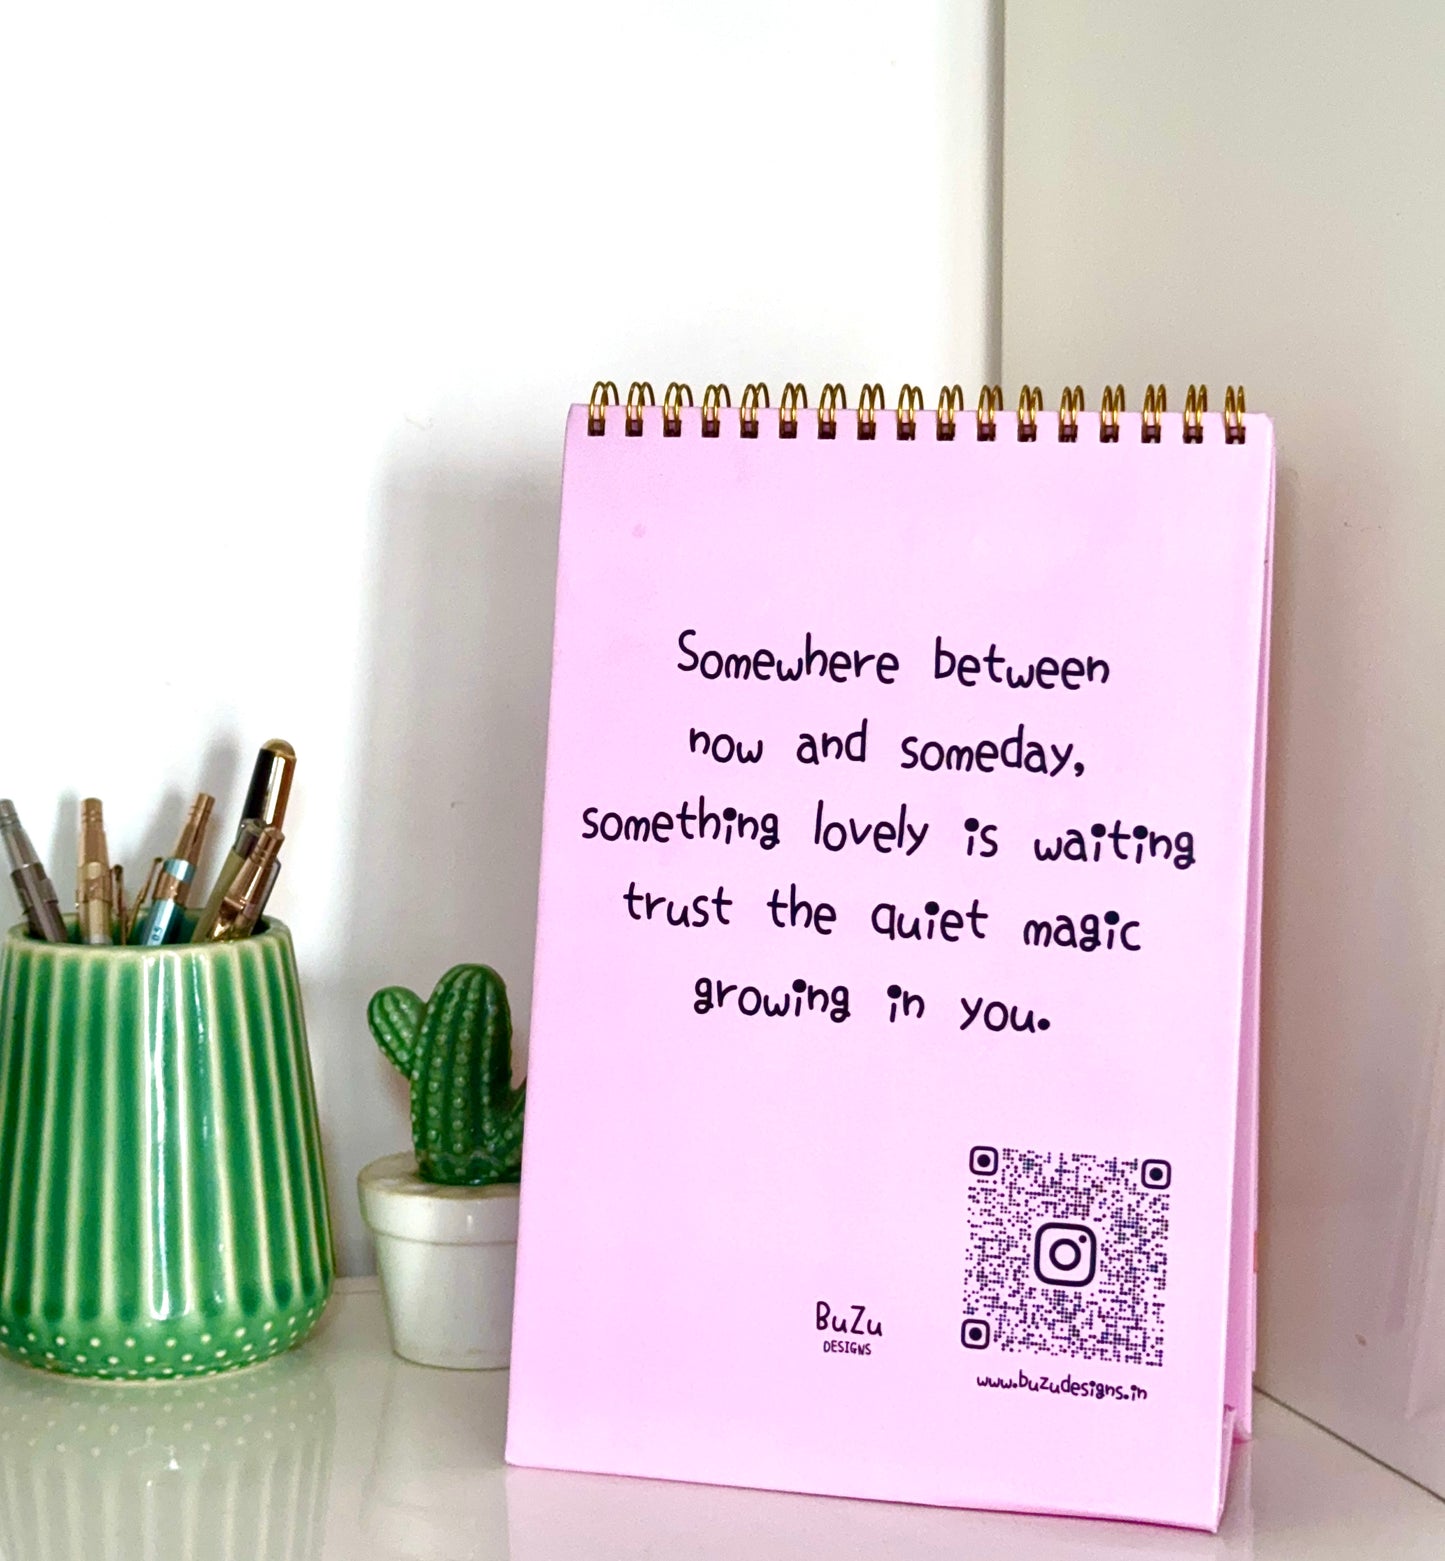 Somewhere between
now and someday,
something lovely is waiting
trust the quiet magic
growing in you.
BuZu
DESIGNS
www.buzudesigns.in
0.5